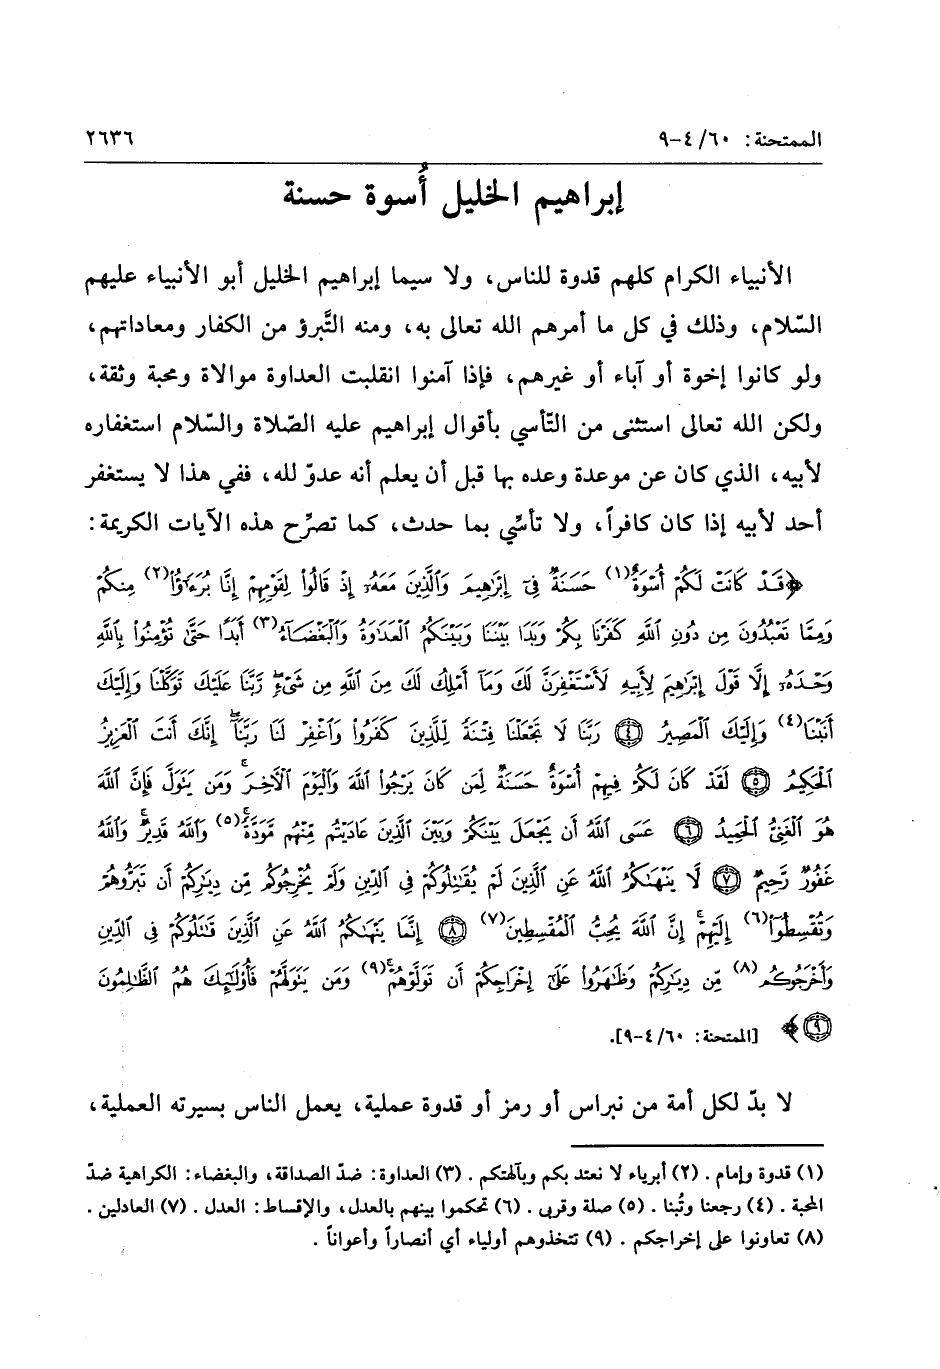 الممتحنة: ٦٠/ ٤-٩ ٢٦٣٦
إبراهيم الخليل أُسوة حسنة
الأنبياء الكرام كلهم قدوة للناس، ولا سيما إبراهيم الخليل أبو الأنبياء عليهم
السّلام، وذلك في كل ما أمرهم الله تعالى به، ومنه التَّبرؤ من الكفار ومعاداتهم،
ولو كانوا إخوة أو آباء أو غيرهم، فإذا آمنوا انقلبت العداوة موالاة ومحبة وثقة،
ولكن الله تعالى استثنى من التّأسي بأقوال إبراهيم عليه الصّلاة والسّلام استغفاره
لأبيه، الذي كان عن موعدة وعده بها قبل أن يعلم أنه عدوّ لله، ففي هذا لا يستغفر
أحد لأبيه إذا كان كافراً، ولا تأسّي بما حدث، كما تصرِّح هذه الآيات الكريمة:
﴿قَدْ كَانَتْ لَكُمْ أُسْوَةٌ(١) حَسَنَةٌ فِىٓ إِبْرَٰهِيمَ وَٱلَّذِينَ مَعَهُۥٓ إِذْ قَالُوا۟ لِقَوْمِهِمْ إِنَّا بُرَءَٰٓؤُا۟(٢) مِنكُمْ
وَمِمَّا تَعْبُدُونَ مِن دُونِ ٱللَّهِ كَفَرْنَا بِكُمْ وَبَدَا بَيْنَنَا وَبَيْنَكُمُ ٱلْعَدَٰوَةُ وَٱلْبَغْضَآءُ(٣) أَبَدًا حَتَّىٰ تُؤْمِنُوا۟ بِٱللَّهِ
وَحْدَهُۥٓ إِلَّا قَوْلَ إِبْرَٰهِيمَ لِأَبِيهِ لَأَسْتَغْفِرَنَّ لَكَ وَمَآ أَمْلِكُ لَكَ مِنَ ٱللَّهِ مِن شَىْءٍ ۖ رَّبَّنَا عَلَيْكَ تَوَكَّلْنَا وَإِلَيْكَ
أَنَبْنَا(٤) وَإِلَيْكَ ٱلْمَصِيرُ ۝٤ رَبَّنَا لَا تَجْعَلْنَا فِتْنَةً لِّلَّذِينَ كَفَرُوا۟ وَٱغْفِرْ لَنَا رَبَّنَآ ۖ إِنَّكَ أَنتَ ٱلْعَزِيزُ
ٱلْحَكِيمُ ۝٥ لَقَدْ كَانَ لَكُمْ فِيهِمْ أُسْوَةٌ حَسَنَةٌ لِّمَن كَانَ يَرْجُوا۟ ٱللَّهَ وَٱلْيَوْمَ ٱلْءَاخِرَ ۚ وَمَن يَتَوَلَّ فَإِنَّ ٱللَّهَ
هُوَ ٱلْغَنِىُّ ٱلْحَمِيدُ ۝٦ عَسَى ٱللَّهُ أَن يَجْعَلَ بَيْنَكُمْ وَبَيْنَ ٱلَّذِينَ عَادَيْتُم مِّنْهُم مَّوَدَّةً ۚ(٥) وَٱللَّهُ قَدِيرٌ ۚ وَٱللَّهُ
غَفُورٌ رَّحِيمٌ ۝٧ لَّا يَنْهَىٰكُمُ ٱللَّهُ عَنِ ٱلَّذِينَ لَمْ يُقَٰتِلُوكُمْ فِى ٱلدِّينِ وَلَمْ يُخْرِجُوكُم مِّن دِيَٰرِكُمْ أَن تَبَرُّوهُمْ
وَتُقْسِطُوٓا۟(٦) إِلَيْهِمْ ۚ إِنَّ ٱللَّهَ يُحِبُّ ٱلْمُقْسِطِينَ(٧) ۝٨ إِنَّمَا يَنْهَىٰكُمُ ٱللَّهُ عَنِ ٱلَّذِينَ قَٰتَلُوكُمْ فِى ٱلدِّينِ
وَأَخْرَجُوكُم(٨) مِّن دِيَٰرِكُمْ وَظَٰهَرُوا۟ عَلَىٰٓ إِخْرَاجِكُمْ أَن تَوَلَّوْهُمْ ۚ(٩) وَمَن يَتَوَلَّهُمْ فَأُو۟لَٰٓئِكَ هُمُ ٱلظَّٰلِمُونَ
۝٩﴾ [الممتحنة: ٦٠/ ٤-٩].
لا بدّ لكل أمة من نبراس أو رمز أو قدوة عملية، يعمل الناس بسيرته العملية،
(١) قدوة وإمام. (٢) أبرياء لا نعتد بكم وبآلهتكم. (٣) العداوة: ضدّ الصداقة، والبغضاء: الكراهية ضدّ
المحبة. (٤) رجعنا وتُبنا. (٥) صلة وقربى. (٦) تحكموا بينهم بالعدل، والإقساط: العدل. (٧) العادلين.
(٨) تعاونوا على إخراجكم. (٩) تتخذوهم أولياء أي أنصاراً وأعواناً.